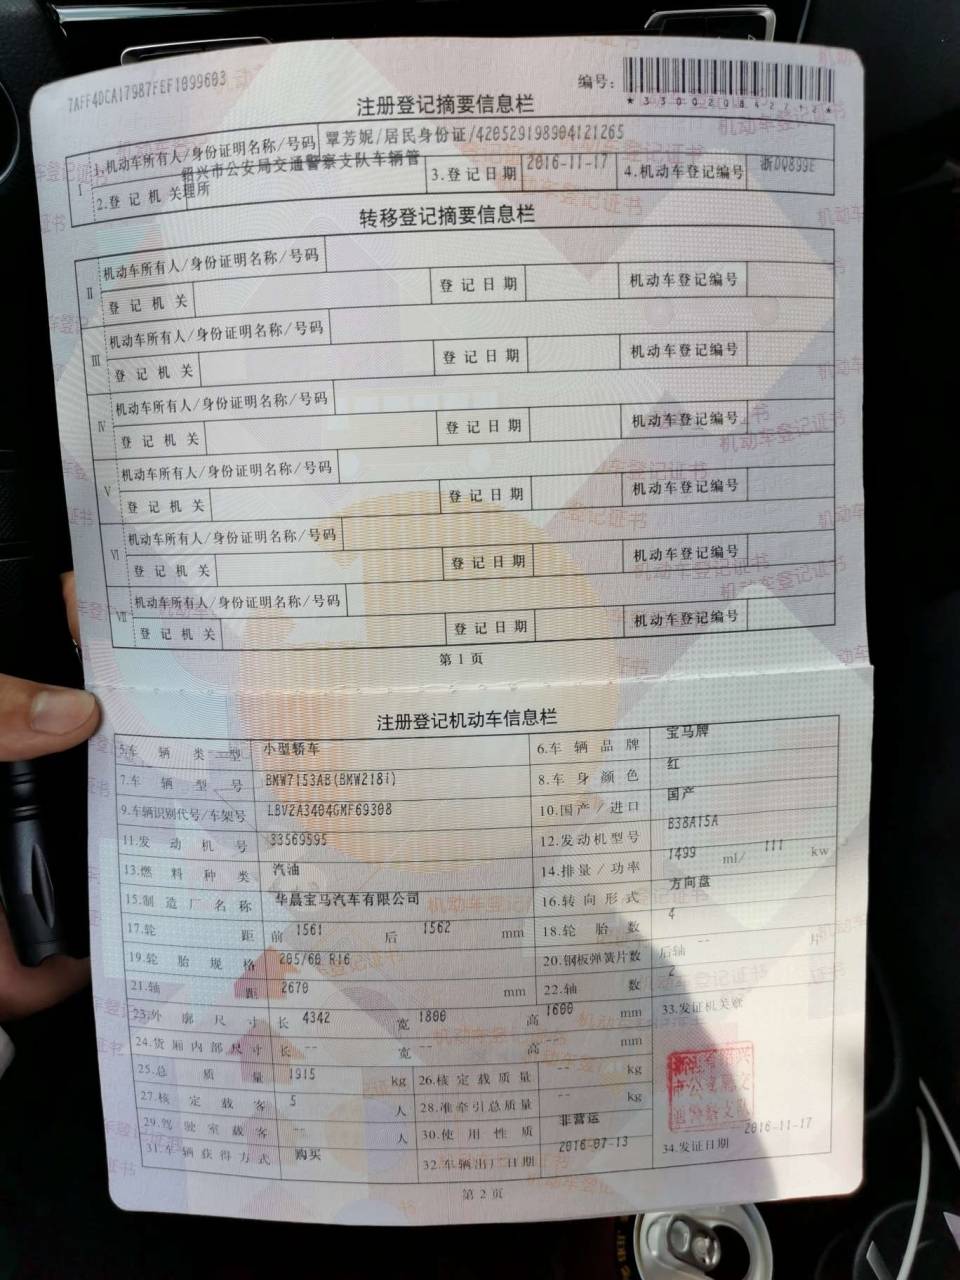 7AFF4DCA17987FEF1099603
编号：
*330020842212*
注册登记摘要信息栏
Ⅰ 1.机动车所有人/身份证明名称/号码 覃芳妮/居民身份证/420529198904121265
2.登记机关 绍兴市公安局交通警察支队车辆管理所 3.登记日期 2016-11-17 4.机动车登记编号 浙DQ899E
转移登记摘要信息栏
Ⅱ 机动车所有人/身份证明名称/号码
登记机关 登记日期 机动车登记编号
Ⅲ 机动车所有人/身份证明名称/号码
登记机关 登记日期 机动车登记编号
Ⅳ 机动车所有人/身份证明名称/号码
登记机关 登记日期 机动车登记编号
Ⅴ 机动车所有人/身份证明名称/号码
登记机关 登记日期 机动车登记编号
Ⅵ 机动车所有人/身份证明名称/号码
登记机关 登记日期 机动车登记编号
Ⅶ 机动车所有人/身份证明名称/号码
登记机关 登记日期 机动车登记编号
第1页
注册登记机动车信息栏
5.车辆类型 小型轿车 6.车辆品牌 宝马牌
7.车辆型号 BMW7153AB(BMW218i) 8.车身颜色 红
9.车辆识别代号/车架号 LBV2A3404GMF69308 10.国产/进口 国产
11.发动机号 33569595 12.发动机型号 B38A15A
13.燃料种类 汽油 14.排量/功率 1499 ml/ 111 kw
15.制造厂名称 华晨宝马汽车有限公司 16.转向形式 方向盘
17.轮距 前 1561 后 1562 mm 18.轮胎数 4
19.轮胎规格 205/60 R16 20.钢板弹簧片数 后轴 -- 片
21.轴距 2670 mm 22.轴数 2
23.外廓尺寸 长 4342 宽 1800 高 1600 mm 33.发证机关章
24.货厢内部尺寸 长 -- 宽 -- 高 -- mm
25.总质量 1915 kg 26.核定载质量 -- kg
27.核定载客 5 人 28.准牵引总质量 -- kg
29.驾驶室载客 -- 人 30.使用性质 非营运
31.车辆获得方式 购买 32.车辆出厂日期 2016-07-13 34.发证日期 2016-11-17
第2页